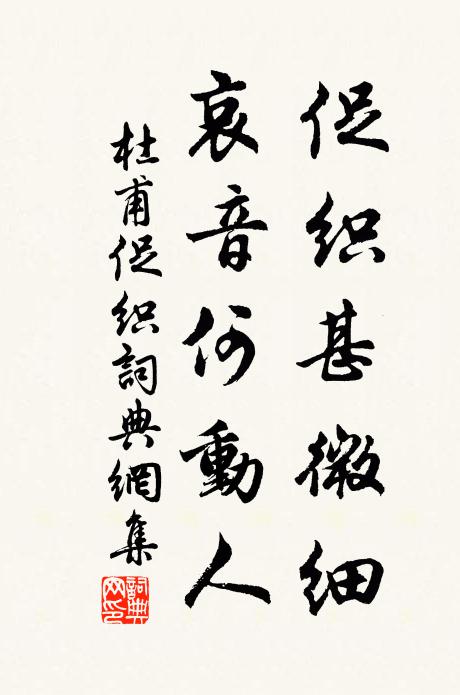 促织甚微细
哀音何動人
杜甫促织詞典網集
詞典網印